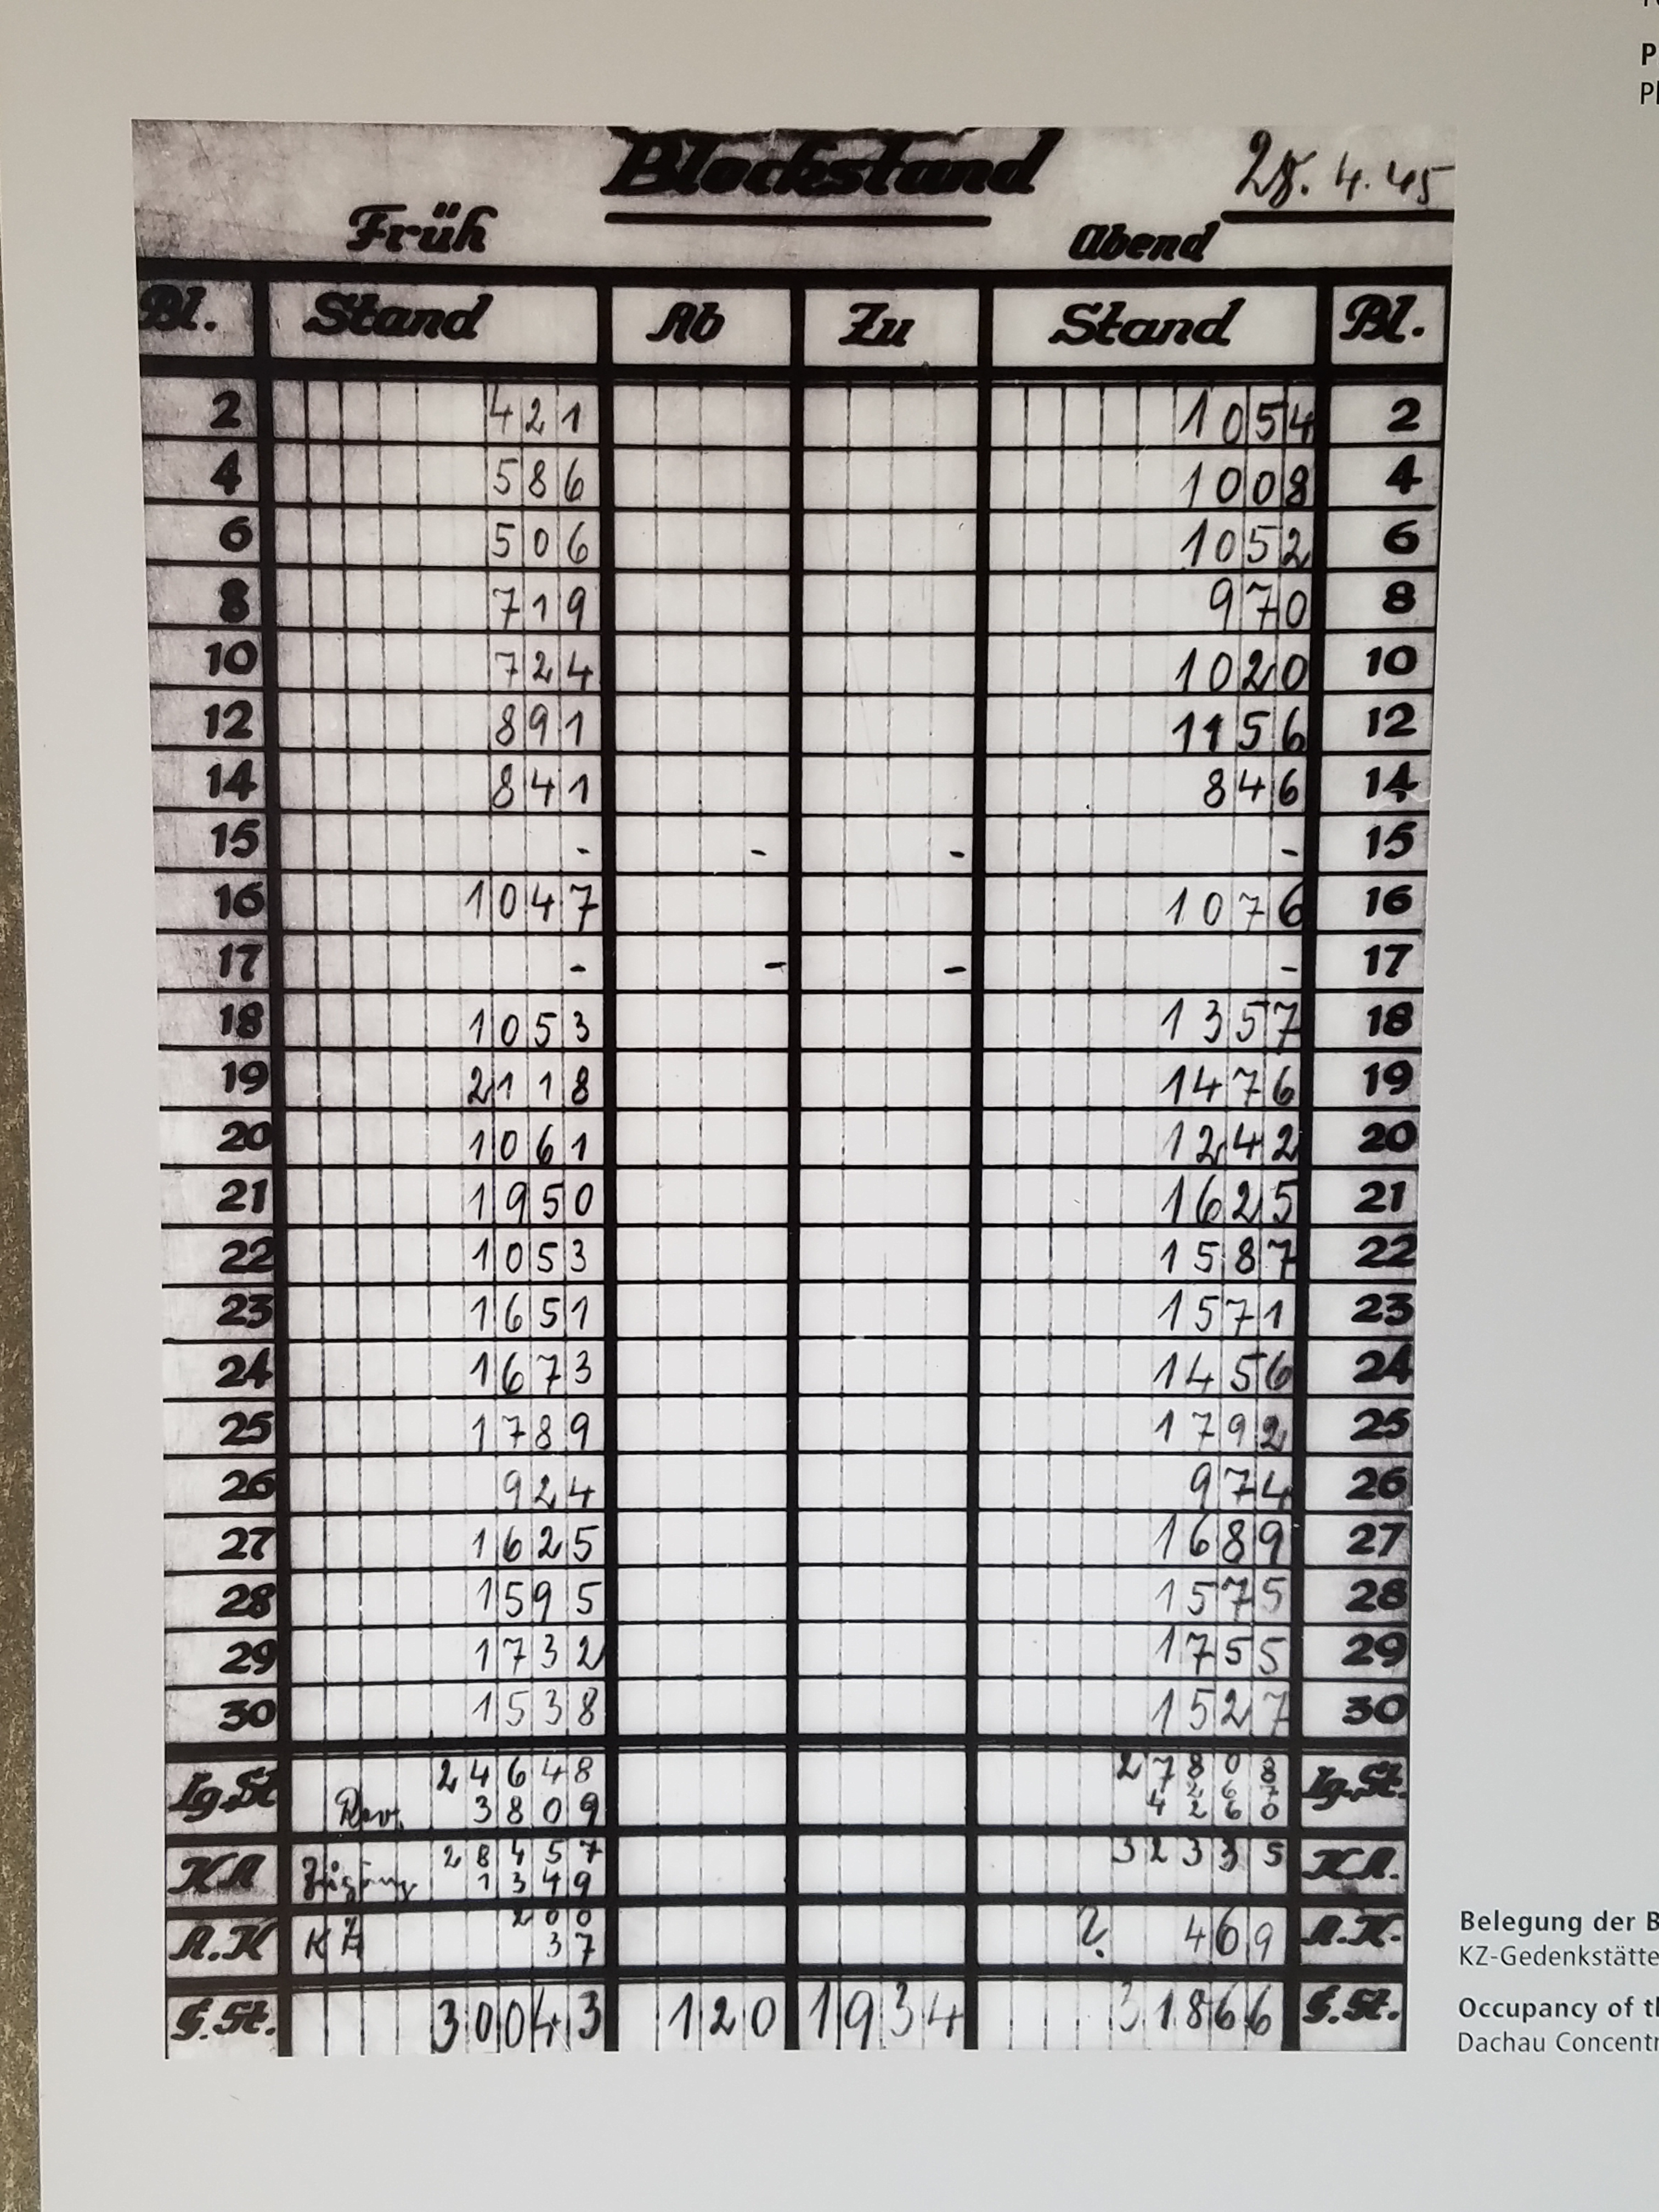 P
Pl
Blockstand
28. 4. 45
Früh Abend
Bl. Stand Ab Zu Stand Bl.
2 421 1054 2
4 586 1008 4
6 506 1052 6
8 719 970 8
10 724 1020 10
12 891 1156 12
14 841 846 14
15 - - - - 15
16 1047 1076 16
17 - - - - 17
18 1053 1357 18
19 2118 1476 19
20 1061 1242 20
21 1950 1625 21
22 1053 1587 22
23 1651 1571 23
24 1673 1456 24
25 1789 1792 25
26 924 974 26
27 1625 1689 27
28 1595 1575 28
29 1732 1755 29
30 1538 1527 30
Lg.St 24648 27808 Lg.St.
Rev. 3809 4260
KA 28457 32335 KA.
Zugang 1349
A.K 200 ? 469 A.K.
KZ 37
G.St. 30043 120 1934 31866 G.St.
Belegung der B
KZ-Gedenkstätte
Occupancy of th
Dachau Concentr